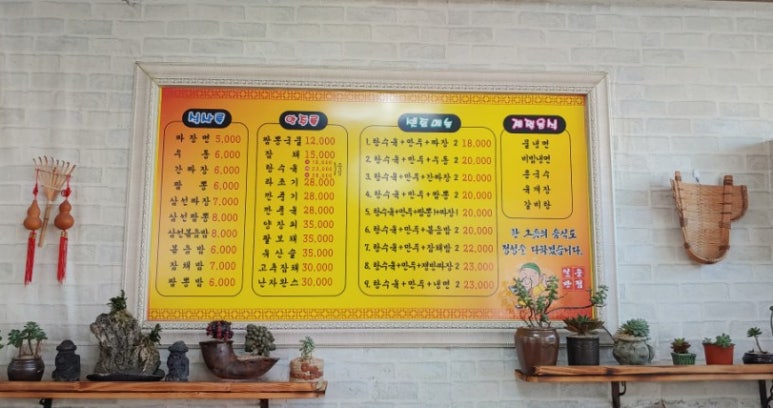 식사류
짜장면 5,000
우동 6,000
간짜장 6,000
짬뽕 6,000
삼선짜장 7,000
삼선짬뽕 8,000
삼선볶음밥 8,000
볶음밥 6,000
잡채밥 7,000
짬뽕밥 6,000
안주류
짬뽕국물 12,000
잡채 15,000
탕수육
라조기 28,000
깐풍기 28,000
깐풍육 28,000
양장피 35,000
팔보채 35,000
유산슬 35,000
고추잡채 30,000
난자완스 30,000
세트메뉴
1. 탕수육+만두+짜장 2 18,000
2. 탕수육+만두+우동 2 20,000
3. 탕수육+만두+간짜장 2 20,000
4. 탕수육+만두+짬뽕 2 20,000
5. 탕수육+만두+짬뽕1+짜장1 20,000
6. 탕수육+만두+볶음밥 2 20,000
7. 탕수육+만두+잡채밥 2 22,000
8. 탕수육+만두+쟁반짜장 2 23,000
9. 탕수육+만두+냉면 2 23,000
계절음식
물냉면
비빔냉면
콩국수
육개장
갈비탕
한 그릇의 음식도
정성을 다하겠습니다.
반점